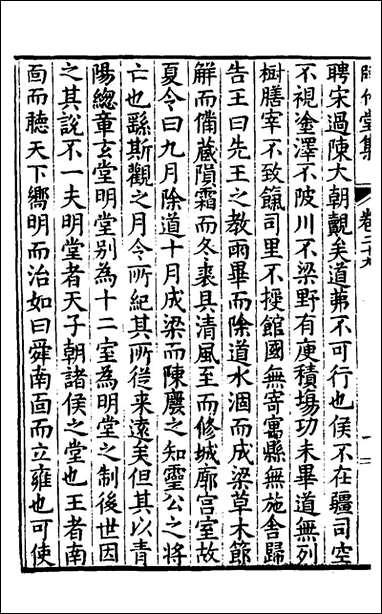 陶作堂集
卷二十九
二
聘宋過陳大朝覿矣道茀不可行也侯不在疆司空
不視塗澤不陂川不梁野有庾積場功未畢道無列
樹膳宰不致餼司里不授館國無寄寓縣無施舍歸
告王曰先王之教雨畢而除道水涸而成梁草木節
解而備藏隕霜而冬裘具清風至而修城廓宮室故
夏令曰九月除道十月成梁而陳廢之知靈公之將
亡也繇斯觀之月令所紀其所從来遠矣但其以青
陽總章玄堂明堂別為十二室為明堂之制後世因
之其說不一夫明堂者天子朝諸侯之堂也王者南
面而聽天下嚮明而治如曰舜南面而立雍也可使